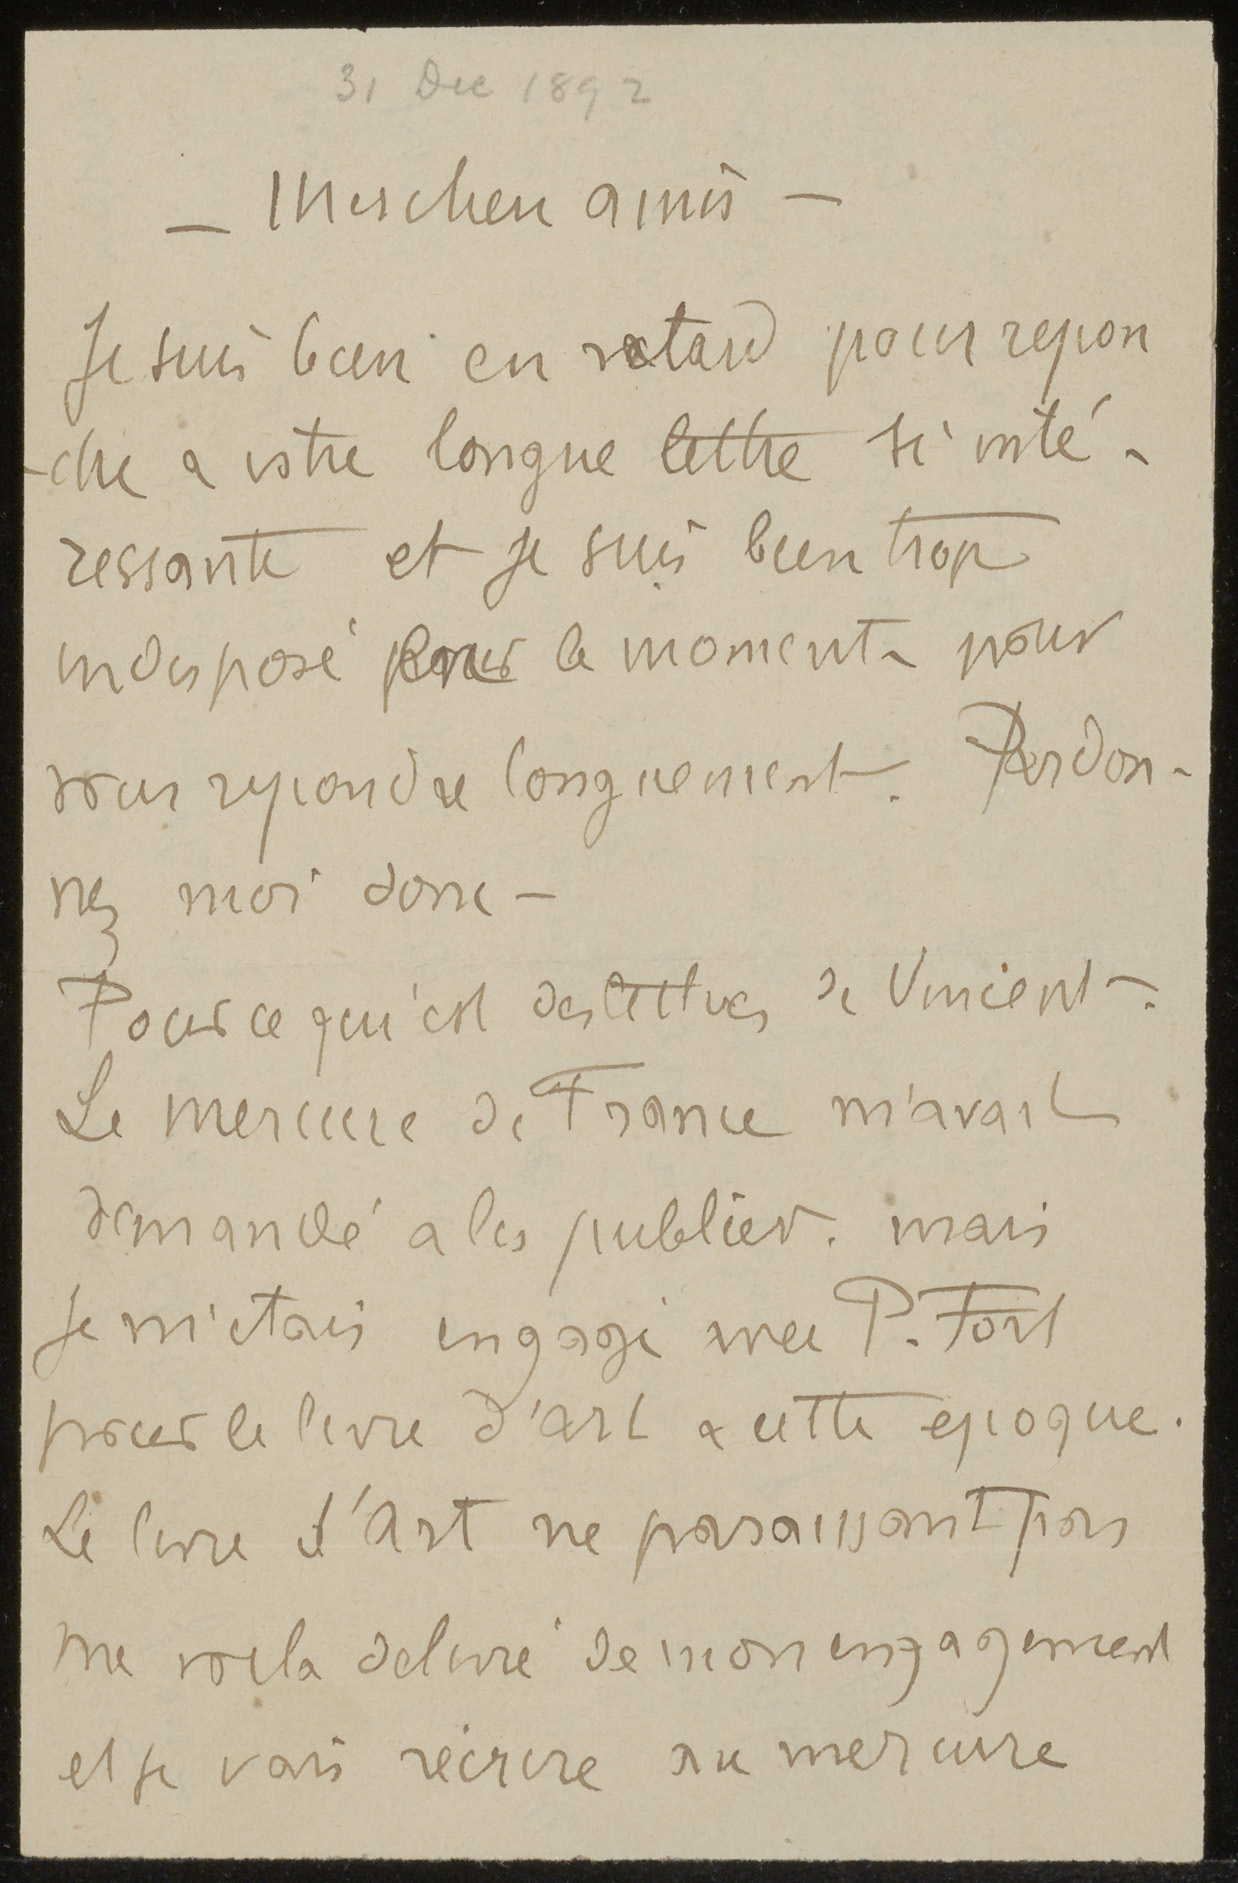 31 Dec 1892
— Mes chers amis —
Je suis bien en retard pour repon
-dre a votre longue lettre si inté-
ressante et je suis bien trop
indisposé pour le moment - pour
vous repondre longuement. Pardon-
nez moi donc -
Pour ce qu'est des lettres de Vincent -.
Le mercure de France m'avait
demandé a les publier. mais
Je m'etais engagé avec P. Fort
pour le livre d'art a cette epoque.
Le livre d'Art ne paraissant pas
me voila delivré de mon engagement
et je vais réecrire au mercure